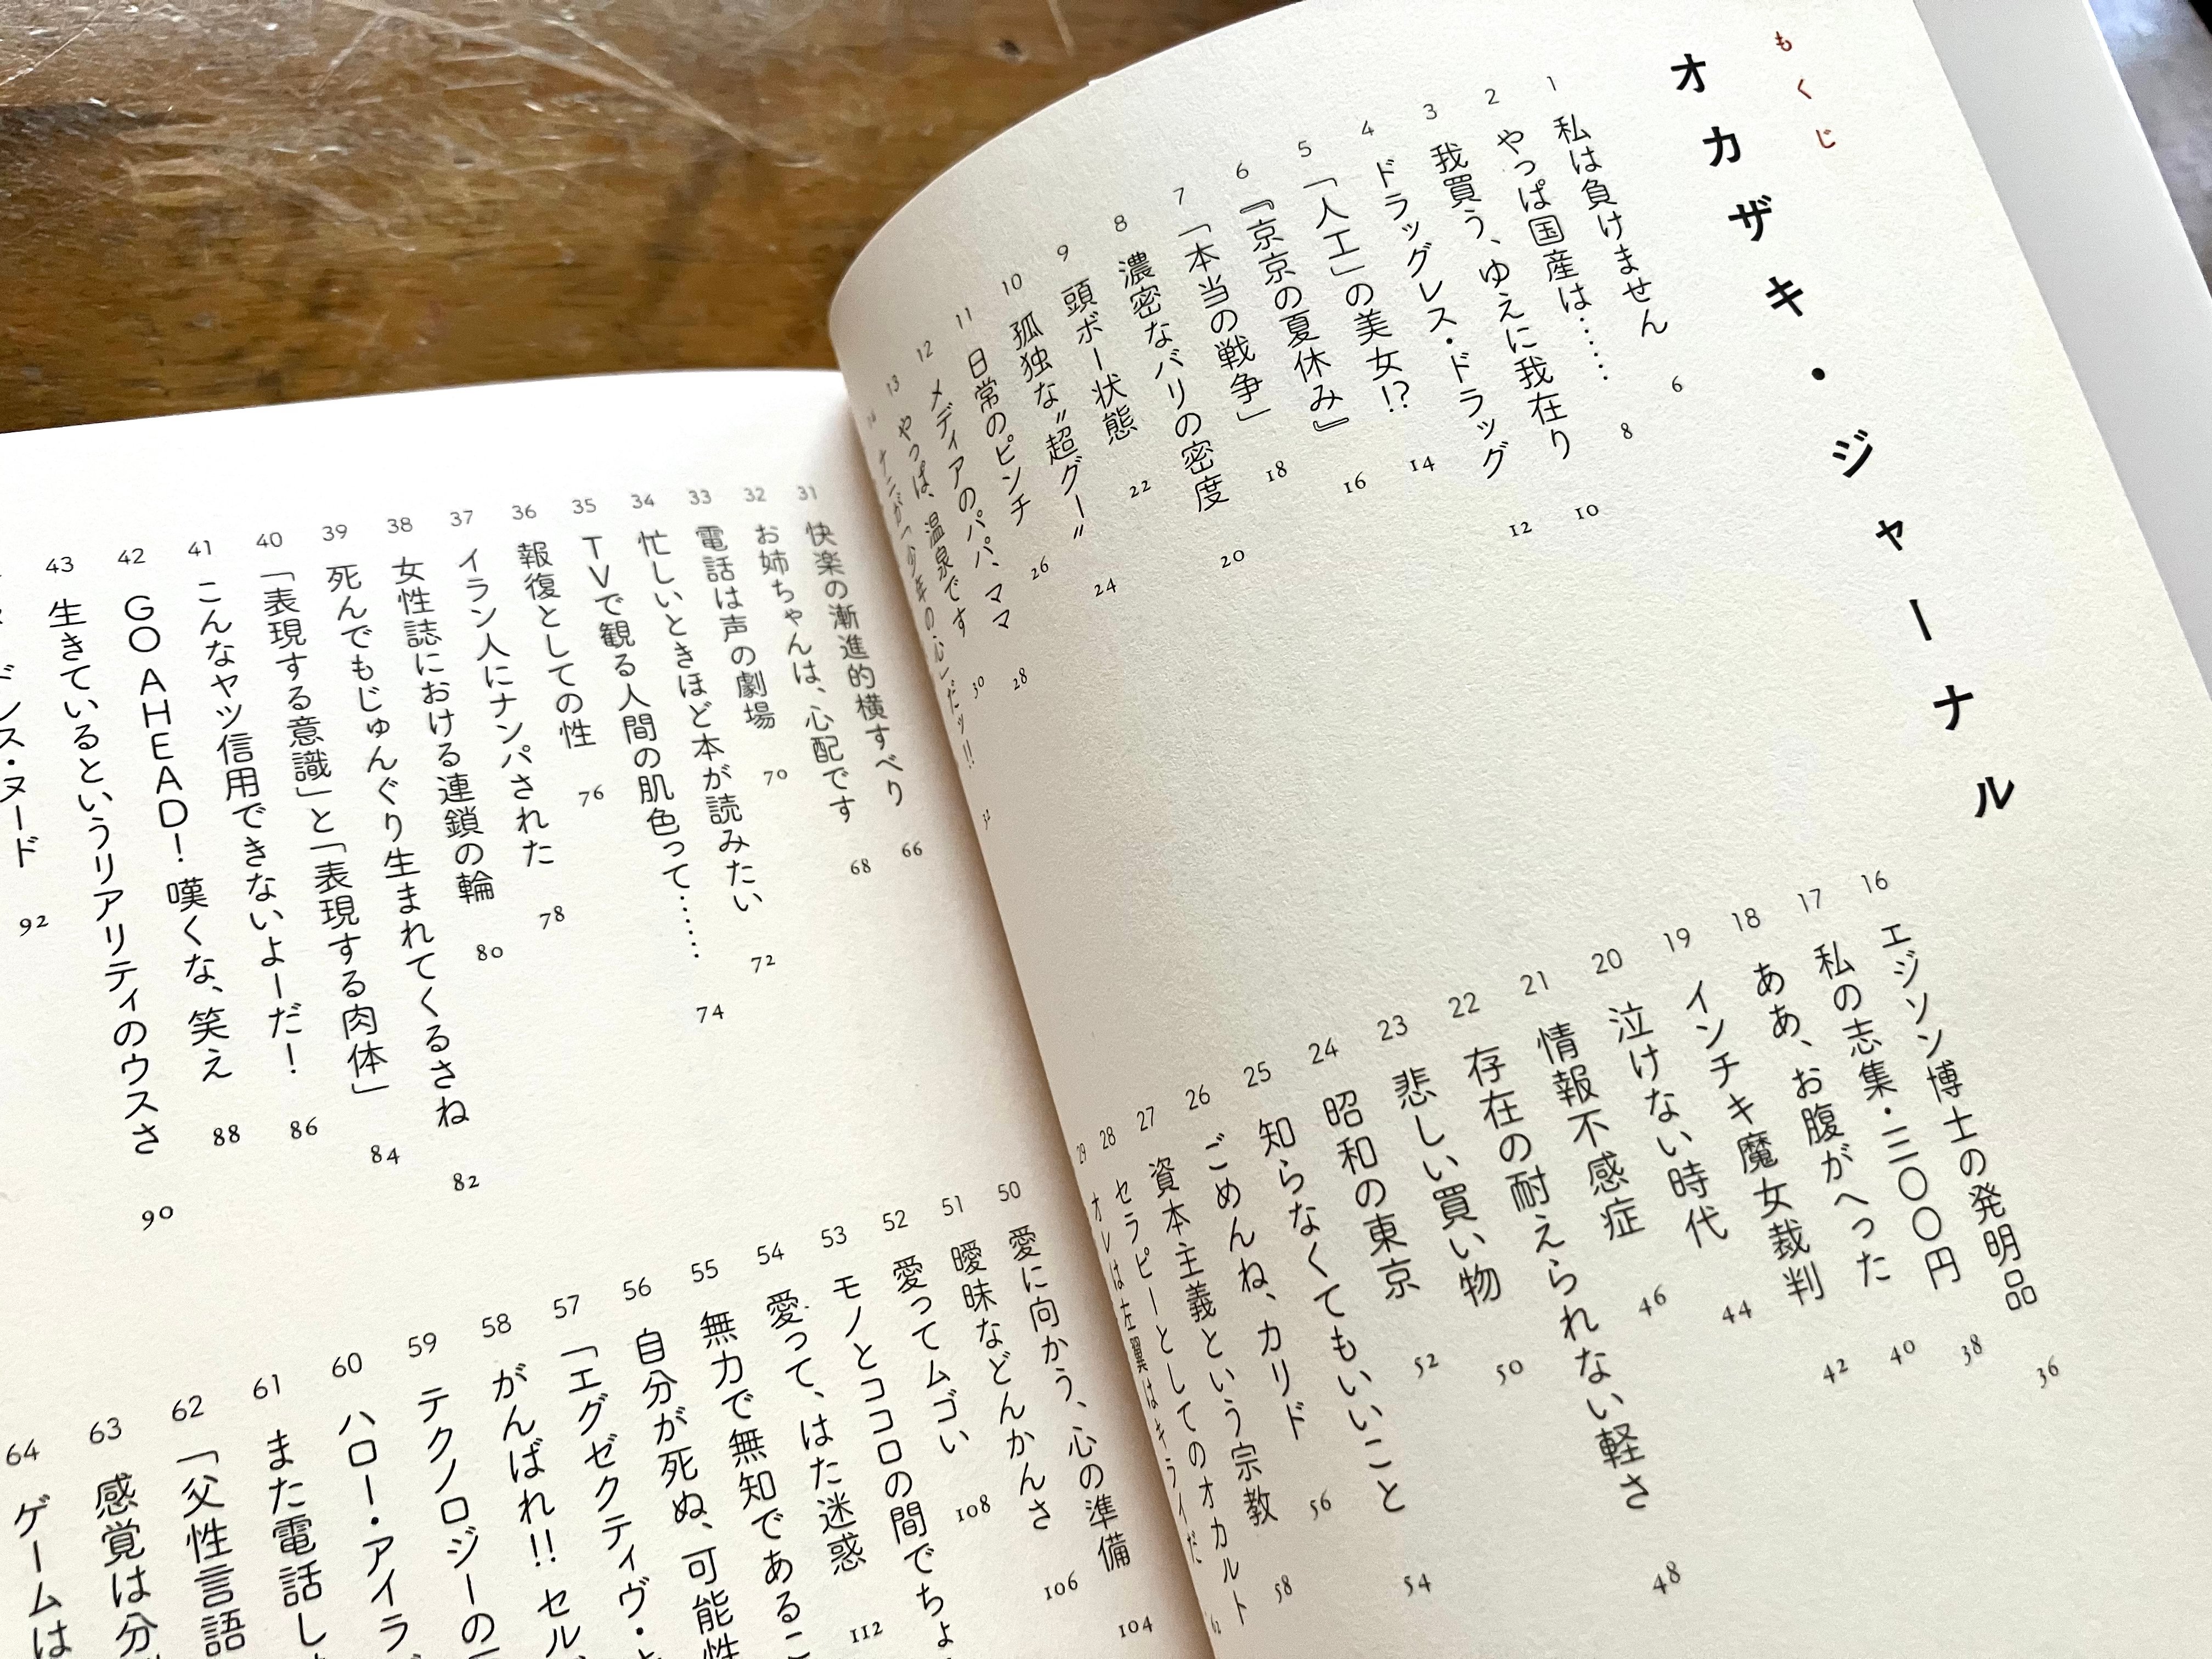 もくじ
オカザキ・ジャーナル
1 私は負けません 6
2 やっぱ国産は…… 8
3 我買う、ゆえに我在り 10
4 ドラッグレス・ドラッグ 12
5 「人工」の美女!? 14
6 『京京の夏休み』 16
7 「本当の戦争」 18
8 濃密なバリの密度 20
9 頭ボー状態 22
10 孤独な〝超グー〟 24
11 日常のピンチ 26
12 メディアのパパ、ママ 28
13 やっぱ、温泉です 30
ナニが「少年の心」だッ!! 32
16 エジソン博士の発明品 36
17 私の志集・三〇〇円 38
18 ああ、お腹がへった 40
19 インチキ魔女裁判 42
20 泣けない時代 44
21 情報不感症 46
22 存在の耐えられない軽さ 48
23 悲しい買い物 50
24 昭和の東京 52
25 知らなくてもいいこと 54
26 ごめんね、カリド 56
27 資本主義という宗教 58
28 セラピーとしてのオカルト
29 オレは左翼はキライだ 62
31 快楽の漸進的横すべり 66
32 お姉ちゃんは、心配です 68
33 電話は声の劇場 70
34 忙しいときほど本が読みたい 72
35 TVで観る人間の肌色って…… 74
36 報復としての性 76
37 イラン人にナンパされた 78
38 女性誌における連鎖の輪 80
39 死んでもじゅんぐり生まれてくるさね 82
40 「表現する意識」と「表現する肉体」 84
41 こんなヤツ信用できないよーだ! 86
42 GO AHEAD! 嘆くな、笑え 88
43 生きているというリアリティのウスさ 90
ンス・ヌード 92
50 愛に向かう、心の準備 104
51 曖昧などんかんさ 106
52 愛ってムゴい 108
53 モノとココロの間でちょ
54 愛って、はた迷惑 112
55 無力で無知であるこ
56 自分が死ぬ、可能性
57 「エグゼクティヴ・と
58 がんばれ!! セル
59 テクノロジーの
60 ハロー・アイラ
61 また電話し
62 「父性言語
63 感覚は分
64 ゲームは